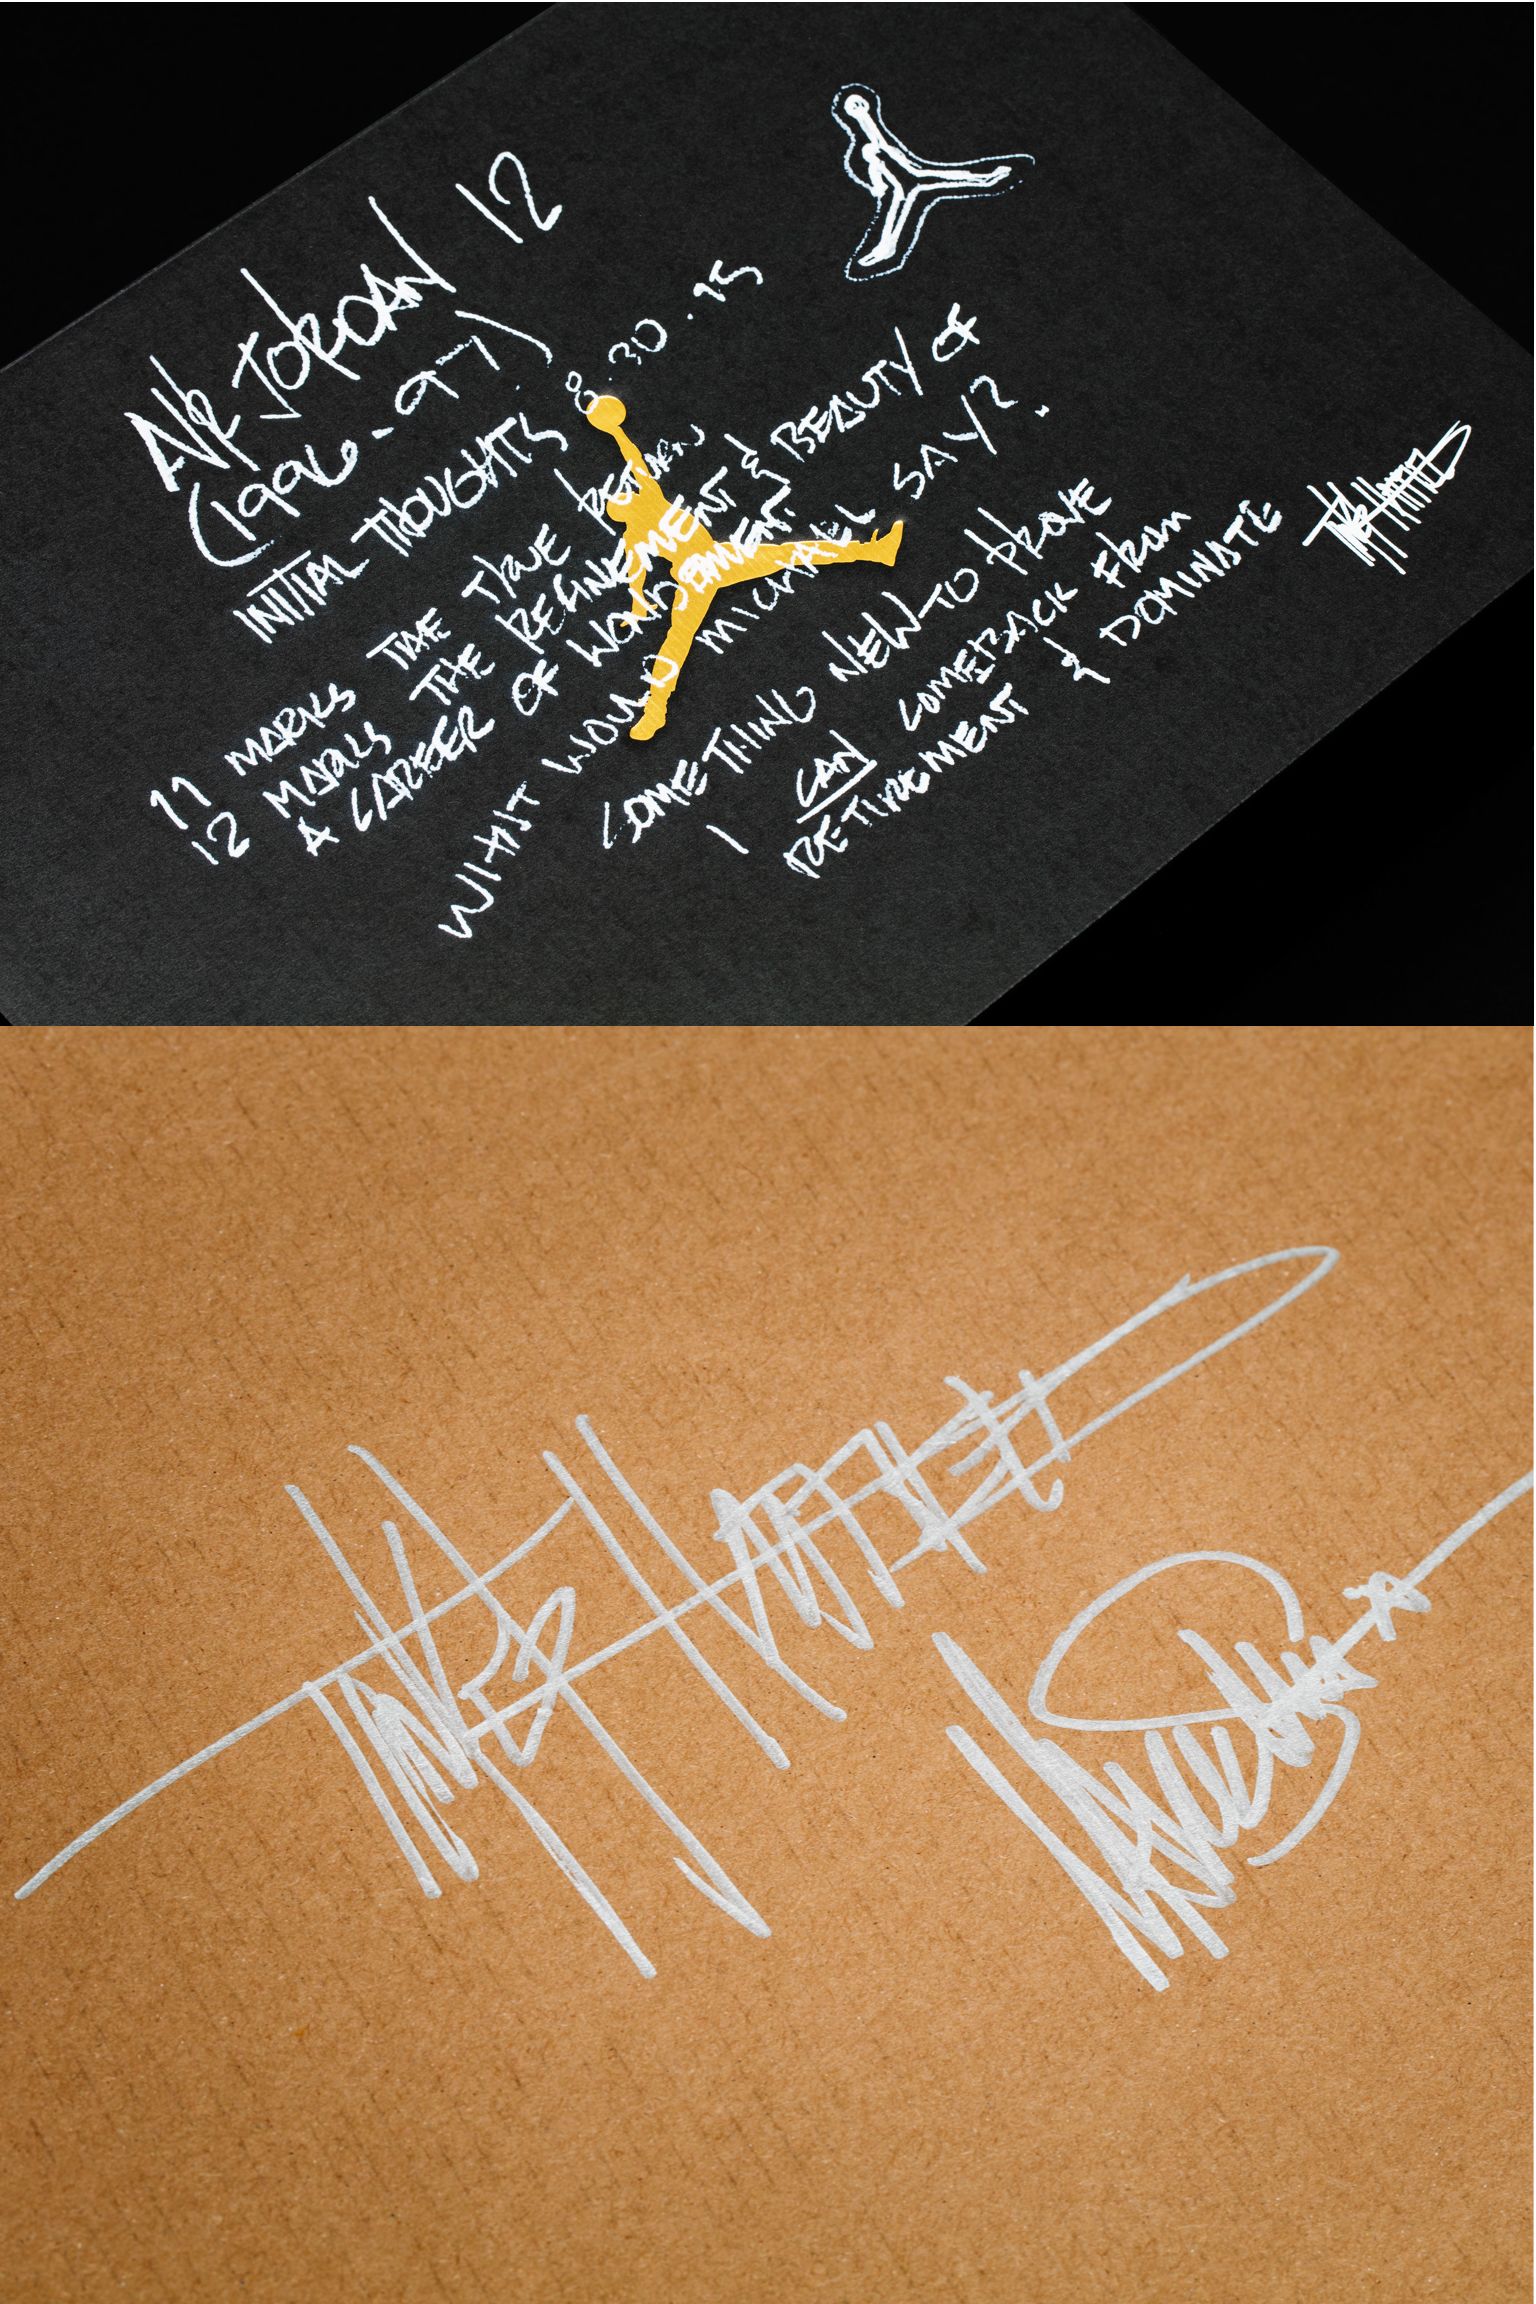 AIR JORDAN 12
(1996-97)
INITIAL THOUGHTS 8.30.95
11 MARKS THE TRUE RETURN
12 MARKS THE REFINEMENT & BEAUTY OF
A CAREER OF WONDERMENT
WHAT WOULD MICHAEL SAY?
SOMETHING NEW TO PROVE
I CAN COMEBACK FROM
RETIREMENT & DOMINATE
TINKER HATFIELD
TINKER HATFIELD